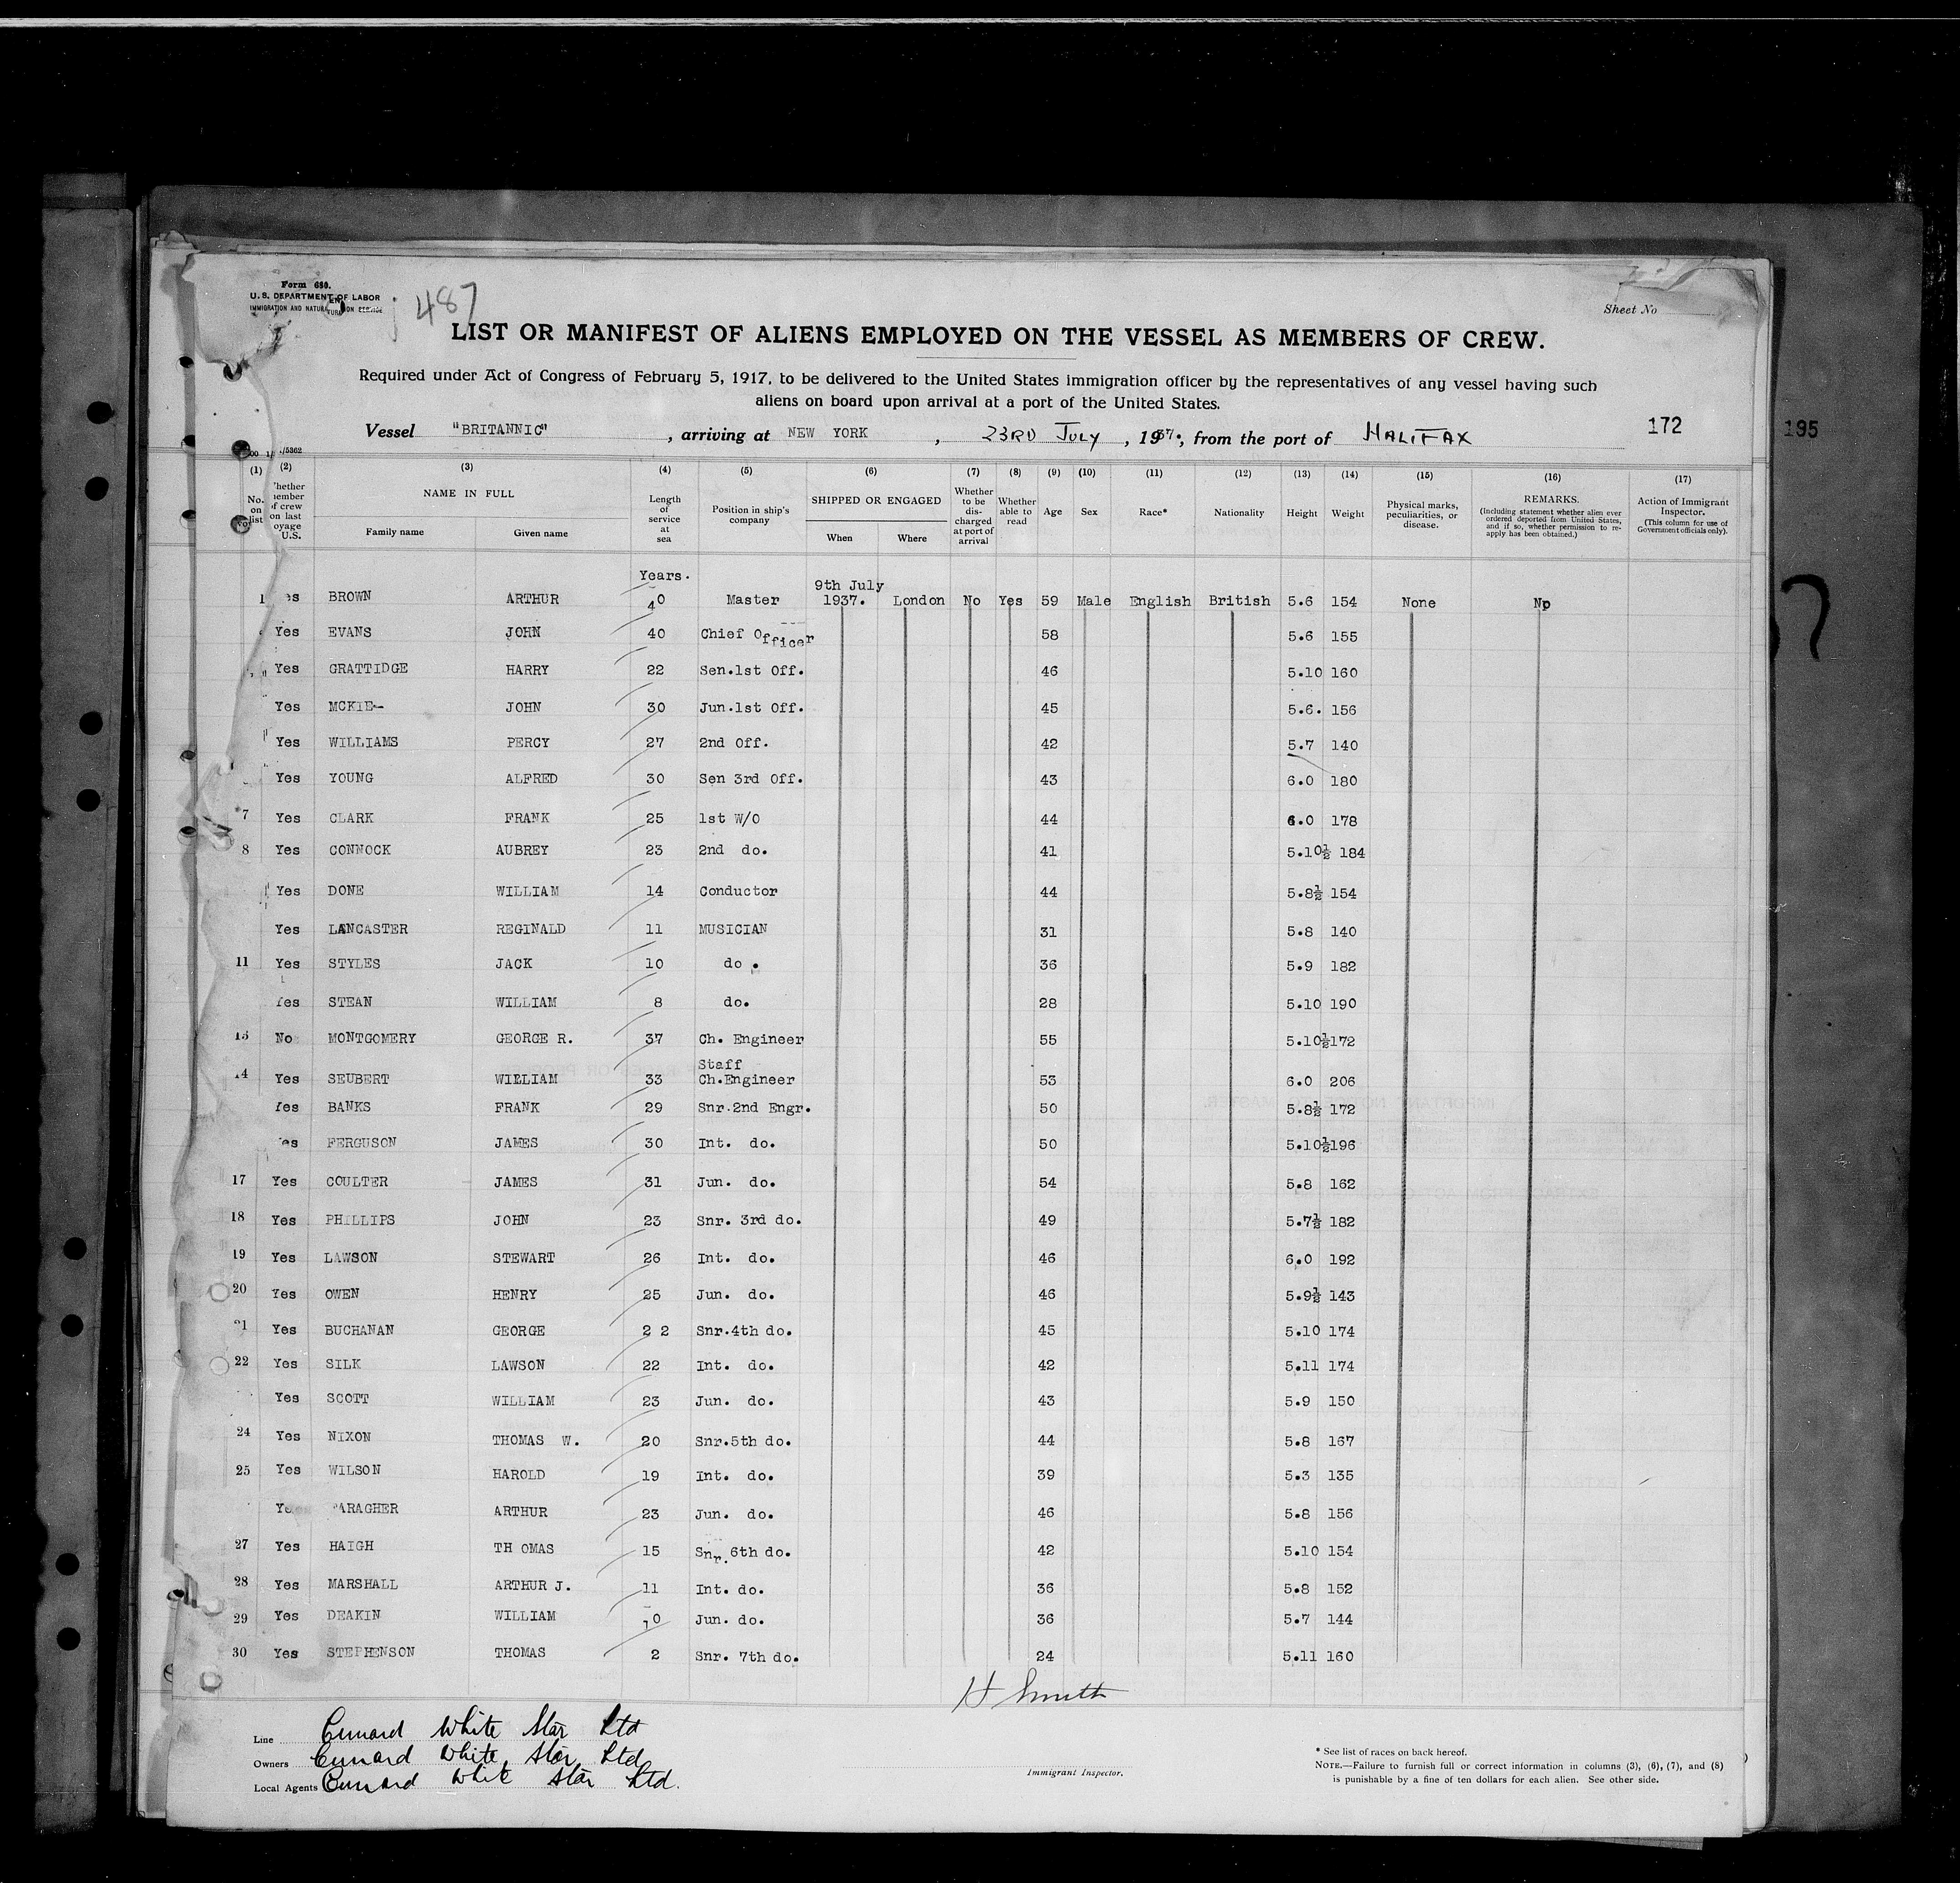 Form 680.
U. S. DEPARTMENT OF LABOR
487
Sheet No
LIST OR MANIFEST OF ALIENS EMPLOYED ON THE VESSEL AS MEMBERS OF CREW.
Required under Act of Congress of February 5, 1917, to be delivered to the United States immigration officer by the representatives of any vessel having such
aliens on board upon arrival at a port of the United States.
Vessel "BRITANNIC", arriving at NEW YORK, 23RD JULY, 1937., from the port of HALIFAX 172 195
(1) (2) (3) (4) (5) (6) (7) (8) (9) (10) (11) (12) (13) (14) (15) (16) (17)
No. on list
NAME IN FULL
Family name Given name
Length of service at sea
Position in ship's company
SHIPPED OR ENGAGED
When Where
Whether to be discharged at port of arrival
Whether able to read
Age Sex Race* Nationality Height Weight
Physical marks, peculiarities, or disease.
REMARKS.
(Including statement whether alien ever ordered deported from United States, and if so, whether permission to reapply has been obtained.)
Action of Immigrant Inspector.
(This column for use of Government officials only).
Years.
BROWN ARTHUR 40 Master 9th July 1937. London No Yes 59 Male English British 5.6 154 None No
Yes EVANS JOHN 40 Chief Officer 58 5.6 155
Yes GRATTIDGE HARRY 22 Sen.1st Off. 46 5.10 160
Yes MCKIE- JOHN 30 Jun.1st Off. 45 5.6. 156
Yes WILLIAMS PERCY 27 2nd Off. 42 5.7 140
Yes YOUNG ALFRED 30 Sen 3rd Off. 43 6.0 180
7 Yes CLARK FRANK 25 1st W/O 44 6.0 178
8 Yes CONNOCK AUBREY 23 2nd do. 41 5.10½ 184
Yes DONE WILLIAM 14 Conductor 44 5.8½ 154
Yes LANCASTER REGINALD 11 MUSICIAN 31 5.8 140
11 Yes STYLES JACK 10 do . 36 5.9 182
Yes STEAN WILLIAM 8 do. 28 5.10 190
13 No MONTGOMERY GEORGE R. 37 Ch. Engineer 55 5.10½ 172
14 Yes SEUBERT WILLIAM 33 Staff Ch.Engineer 53 6.0 206
Yes BANKS FRANK 29 Snr.2nd Engr. 50 5.8½ 172
FERGUSON JAMES 30 Int. do. 50 5.10½ 196
17 Yes COULTER JAMES 31 Jun. do. 54 5.8 162
18 Yes PHILLIPS JOHN 23 Snr. 3rd do. 49 5.7½ 182
19 Yes LAWSON STEWART 26 Int. do. 46 6.0 192
20 Yes OWEN HENRY 25 Jun. do. 46 5.9½ 143
21 Yes BUCHANAN GEORGE 2 2 Snr.4th do. 45 5.10 174
22 Yes SILK LAWSON 22 Int. do. 42 5.11 174
Yes SCOTT WILLIAM 23 Jun. do. 43 5.9 150
24 Yes NIXON THOMAS W. 20 Snr.5th do. 44 5.8 167
25 Yes WILSON HAROLD 19 Int. do. 39 5.3 135
ARAGHER ARTHUR 23 Jun. do. 46 5.8 156
27 Yes HAIGH TH OMAS 15 Snr.6th do. 42 5.10 154
28 Yes MARSHALL ARTHUR J. 11 Int. do. 36 5.8 152
29 Yes DEAKIN WILLIAM 10 Jun. do. 36 5.7 144
30 Yes STEPHENSON THOMAS 2 Snr. 7th do. 24 5.11 160
H Smith
Line Cunard White Star Ltd
Owners Cunard White Star Ltd
Local Agents Cunard White Star Ltd.
Immigrant Inspector.
* See list of races on back hereof.
NOTE.—Failure to furnish full or correct information in columns (3), (6), (7), and (8)
is punishable by a fine of ten dollars for each alien. See other side.